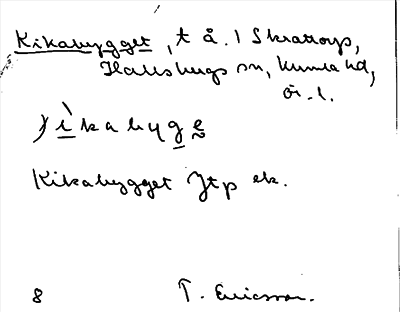 Kikabygget, t å. 1 Skrattorp,
Hallsbergs sn, Kumla hd,
Ör. l.
Kikabygget Jtp ek.
8 T. Ericsson.